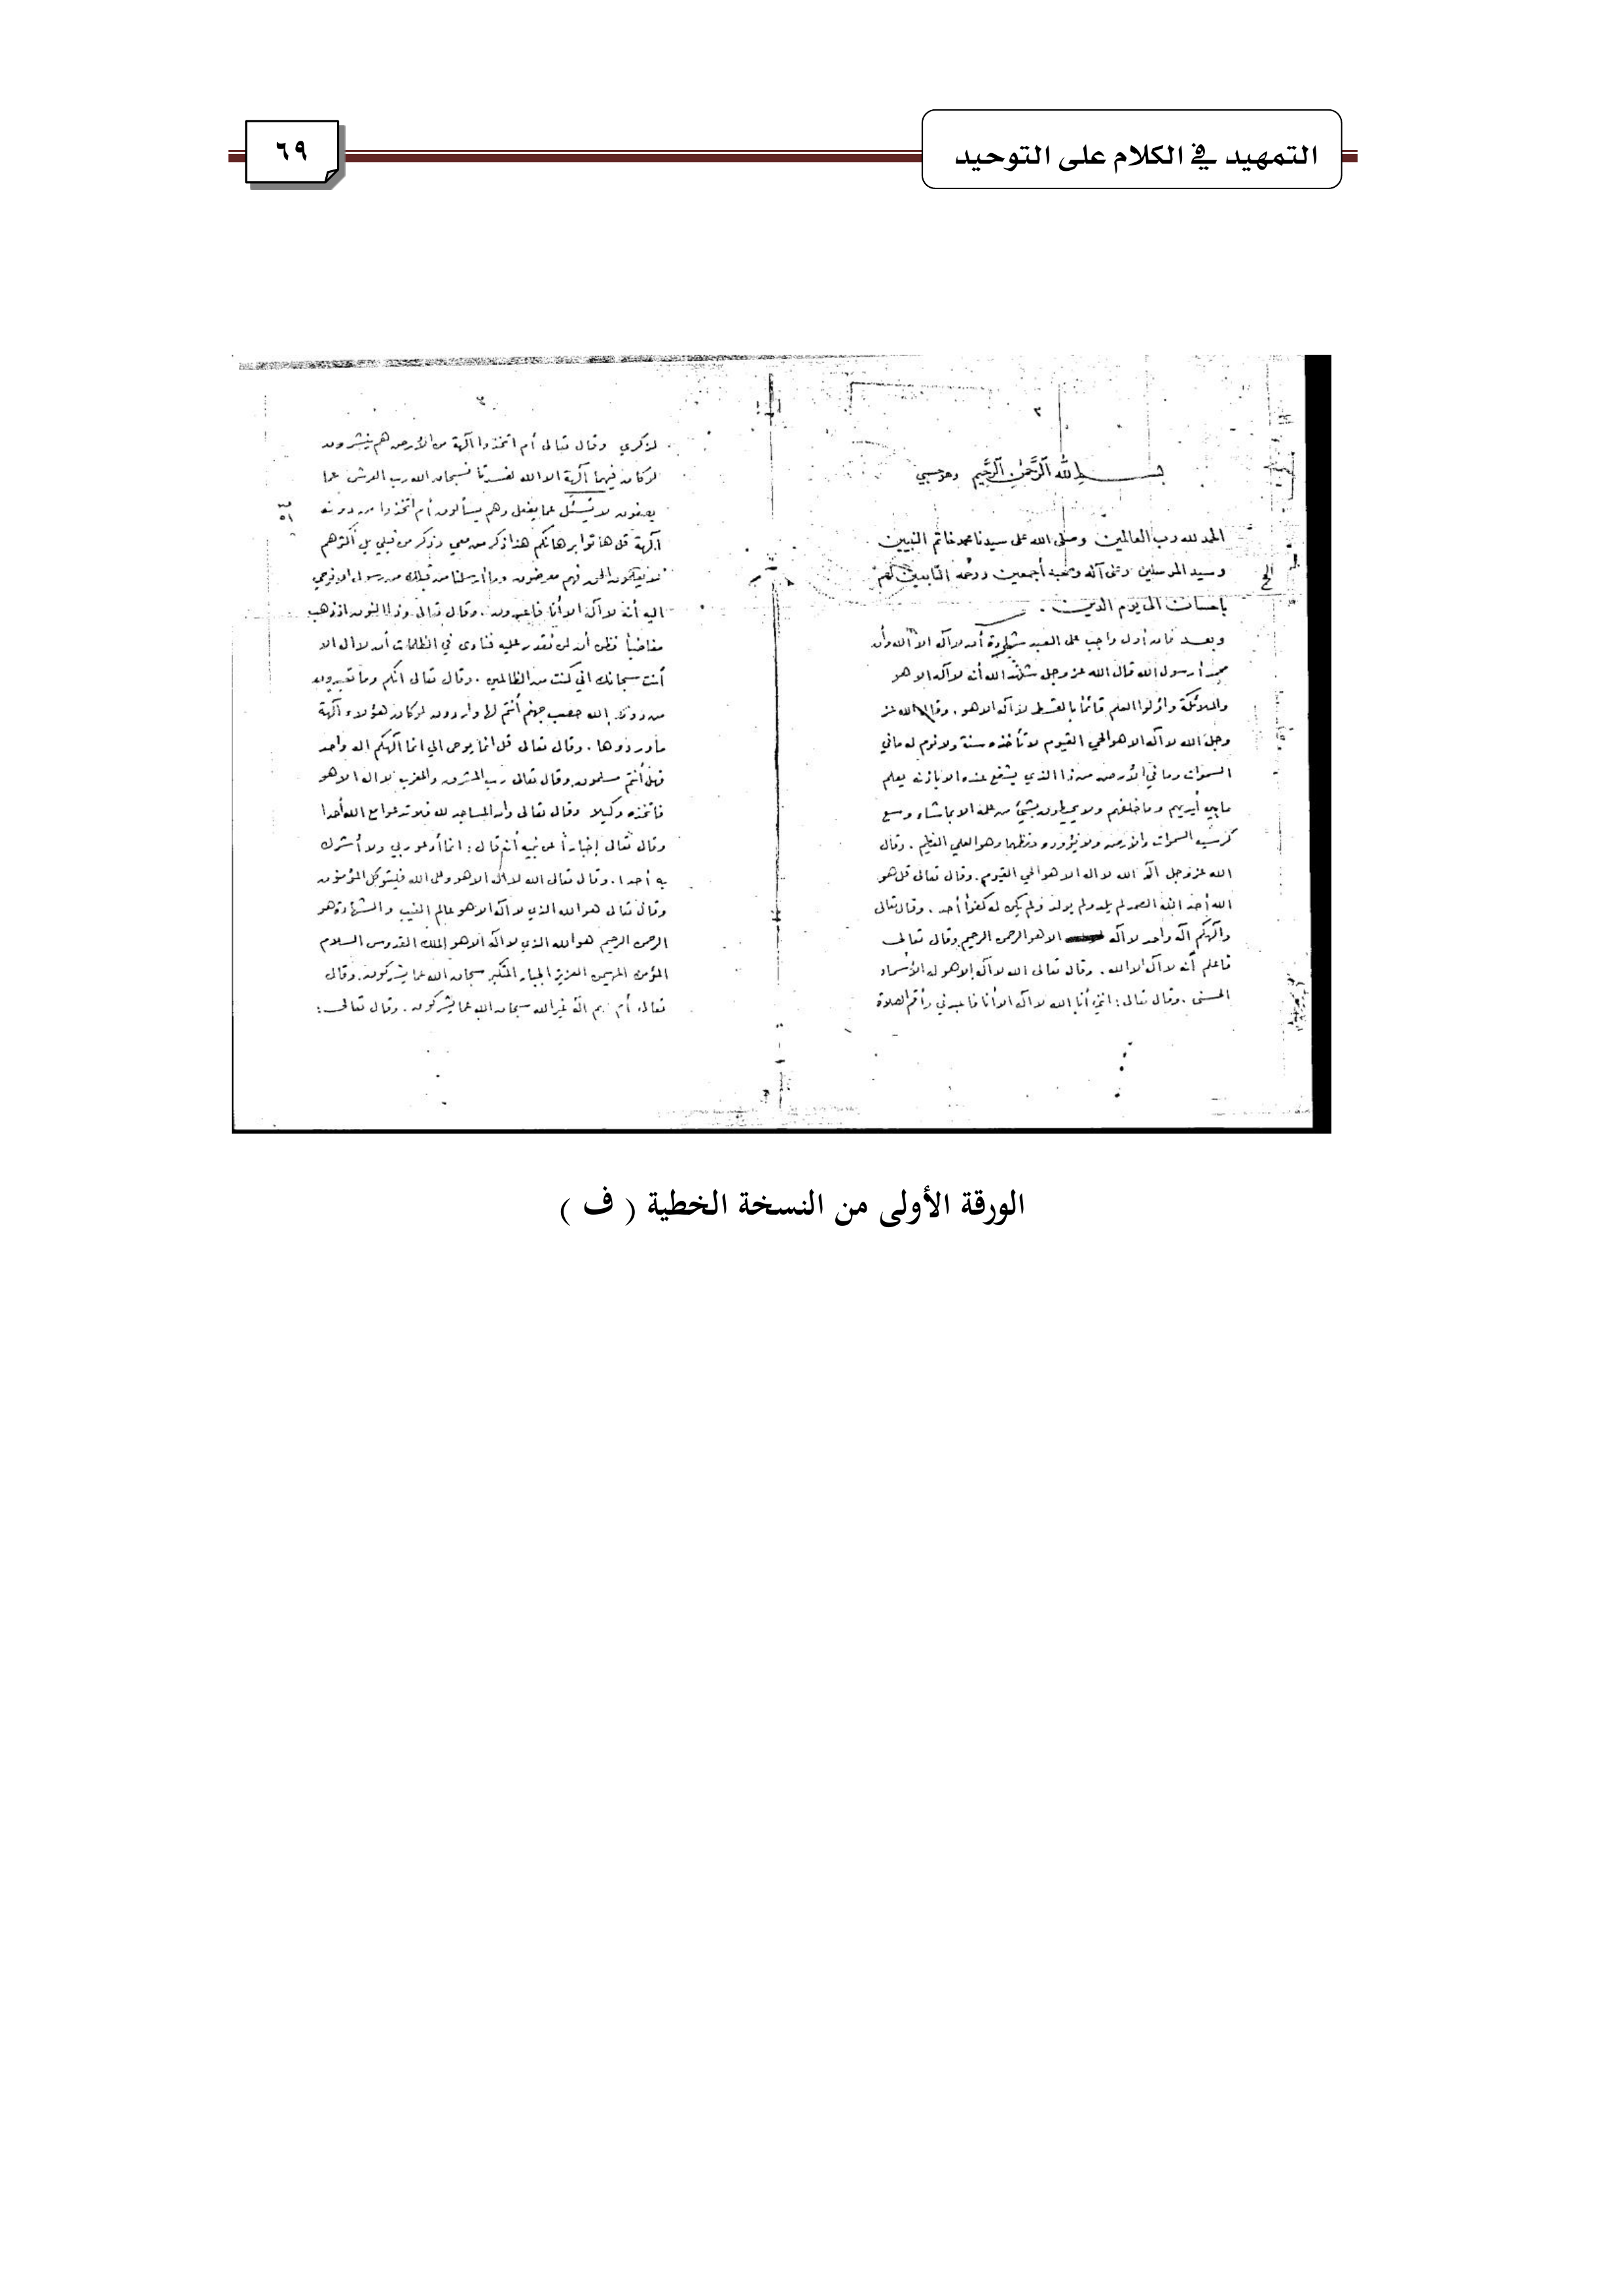 التمهيد في الكلام على التوحيد
٦٩
٢
بسم الله الرحمن الرحيم وهو حسبي
الحمد لله رب العالمين وصلى الله على سيدنا محمد خاتم النبيين
وسيد المرسلين وعلى آله وصحبه أجمعين ورحمة التابعين لهم
بإحسان الى يوم الدين .
وبعد فان أول واجب على العبد شهادة أن لا اله الا الله وأن
محمدا رسول الله قال الله عز وجل شهد الله أنه لا اله الا هو
والملائكة وأولوا العلم قائما بالقسط لا اله الا هو . وقال الله عز
وجل الله لا اله الا هو الحي القيوم لا تأخذه سنة ولا نوم له ما في
السموات وما في الأرض من ذا الذي يشفع عنده الا باذنه يعلم
ما بين أيديهم وما خلفهم ولا يحيطون بشيئ من علمه الا بما شاء وسع
كرسيه السموات والأرض ولا يؤوده حفظهما وهو العلي العظيم . وقال
الله عز وجل الم الله لا اله الا هو الحي القيوم . وقال تعالى قل هو
الله أحد الله الصمد لم يلد ولم يولد ولم يكن له كفوا أحد . وقال تعالى
والهكم اله واحد لا اله الا هو الرحمن الرحيم وقال تعالى
فاعلم أنه لا اله الا الله . وقال تعالى الله لا اله إلا هو له الأسماء
الحسنى . وقال تعالى : انني أنا الله لا اله الا أنا فاعبدني وأقم الصلاة
٣
لذكري وقال تعالى أم اتخذوا آلهة من الأرض هم ينشرون
لو كان فيهما آلهة الا الله لفسدتا فسبحان الله رب العرش عما
يصفون لا يسئل عما يفعل وهم يسألون أم اتخذوا من دونه
آلهة قل هاتوا برهانكم هذا ذكر من معي وذكر من قبلي بل أكثرهم
لا يعلمون الحق فهم معرضون وما أرسلنا من قبلك من رسول الا نوحي
اليه أنه لا اله الا أنا فاعبدون . وقال تعالى وذا النون اذ ذهب
مغاضبا فظن أن لن نقدر عليه فنادى في الظلمات أن لا اله الا
أنت سبحانك اني كنت من الظالمين . وقال تعالى انكم وما تعبدون
من دون الله حصب جهنم أنتم لها واردون لو كان هؤلاء آلهة
ما وردوها . وقال تعالى قل انما يوحى الي انما الهكم اله واحد
فهل أنتم مسلمون وقال تعالى رب المشرق والمغرب لا اله الا هو
فاتخذه وكيلا وقال تعالى وأن المساجد لله فلا تدعوا مع الله أحدا
وقال تعالى إخبارا عن نبيه أنه قال : انما أدعو ربي ولا أشرك
به أحدا . وقال تعالى الله لا اله الا هو وعلى الله فليتوكل المؤمنون
وقال تعالى هو الله الذي لا اله الا هو عالم الغيب والشهادة هو
الرحمن الرحيم هو الله الذي لا اله الا هو الملك القدوس السلام
المؤمن المهيمن العزيز الجبار المتكبر سبحان الله عما يشركون . وقال
تعالى أم لهم اله غير الله سبحان الله عما يشركون . وقال تعالى :
الورقة الأولى من النسخة الخطية ( ف )